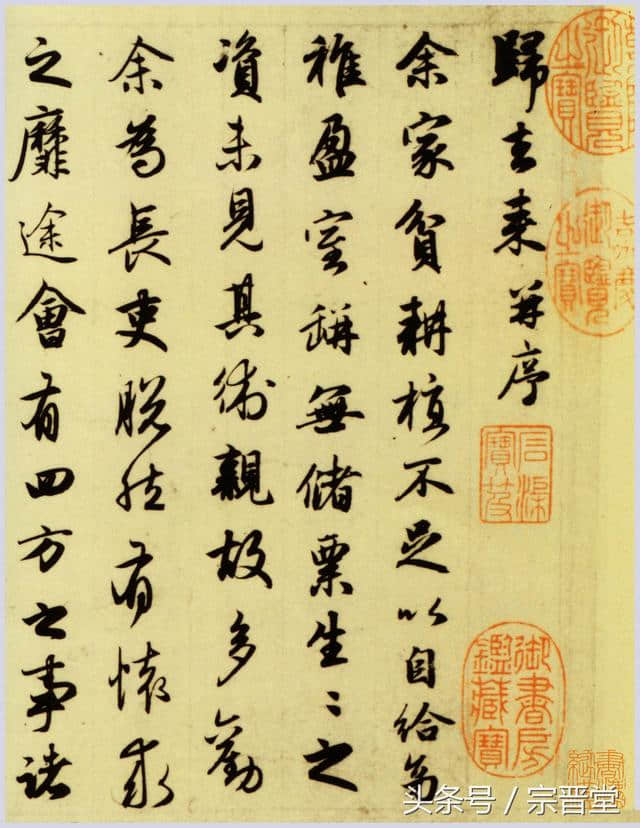 歸去来并序
余家貧耕植不足以自給幼
稚盈室缾無儲粟生〻之
資未見其術親故多勸
余為長吏脱然有懷求
之靡途會有四方之事諸
御覽之寶
嘉慶御覽之寶
石渠寶笈
御書房鑑藏寶
头条号 / 宗晋堂